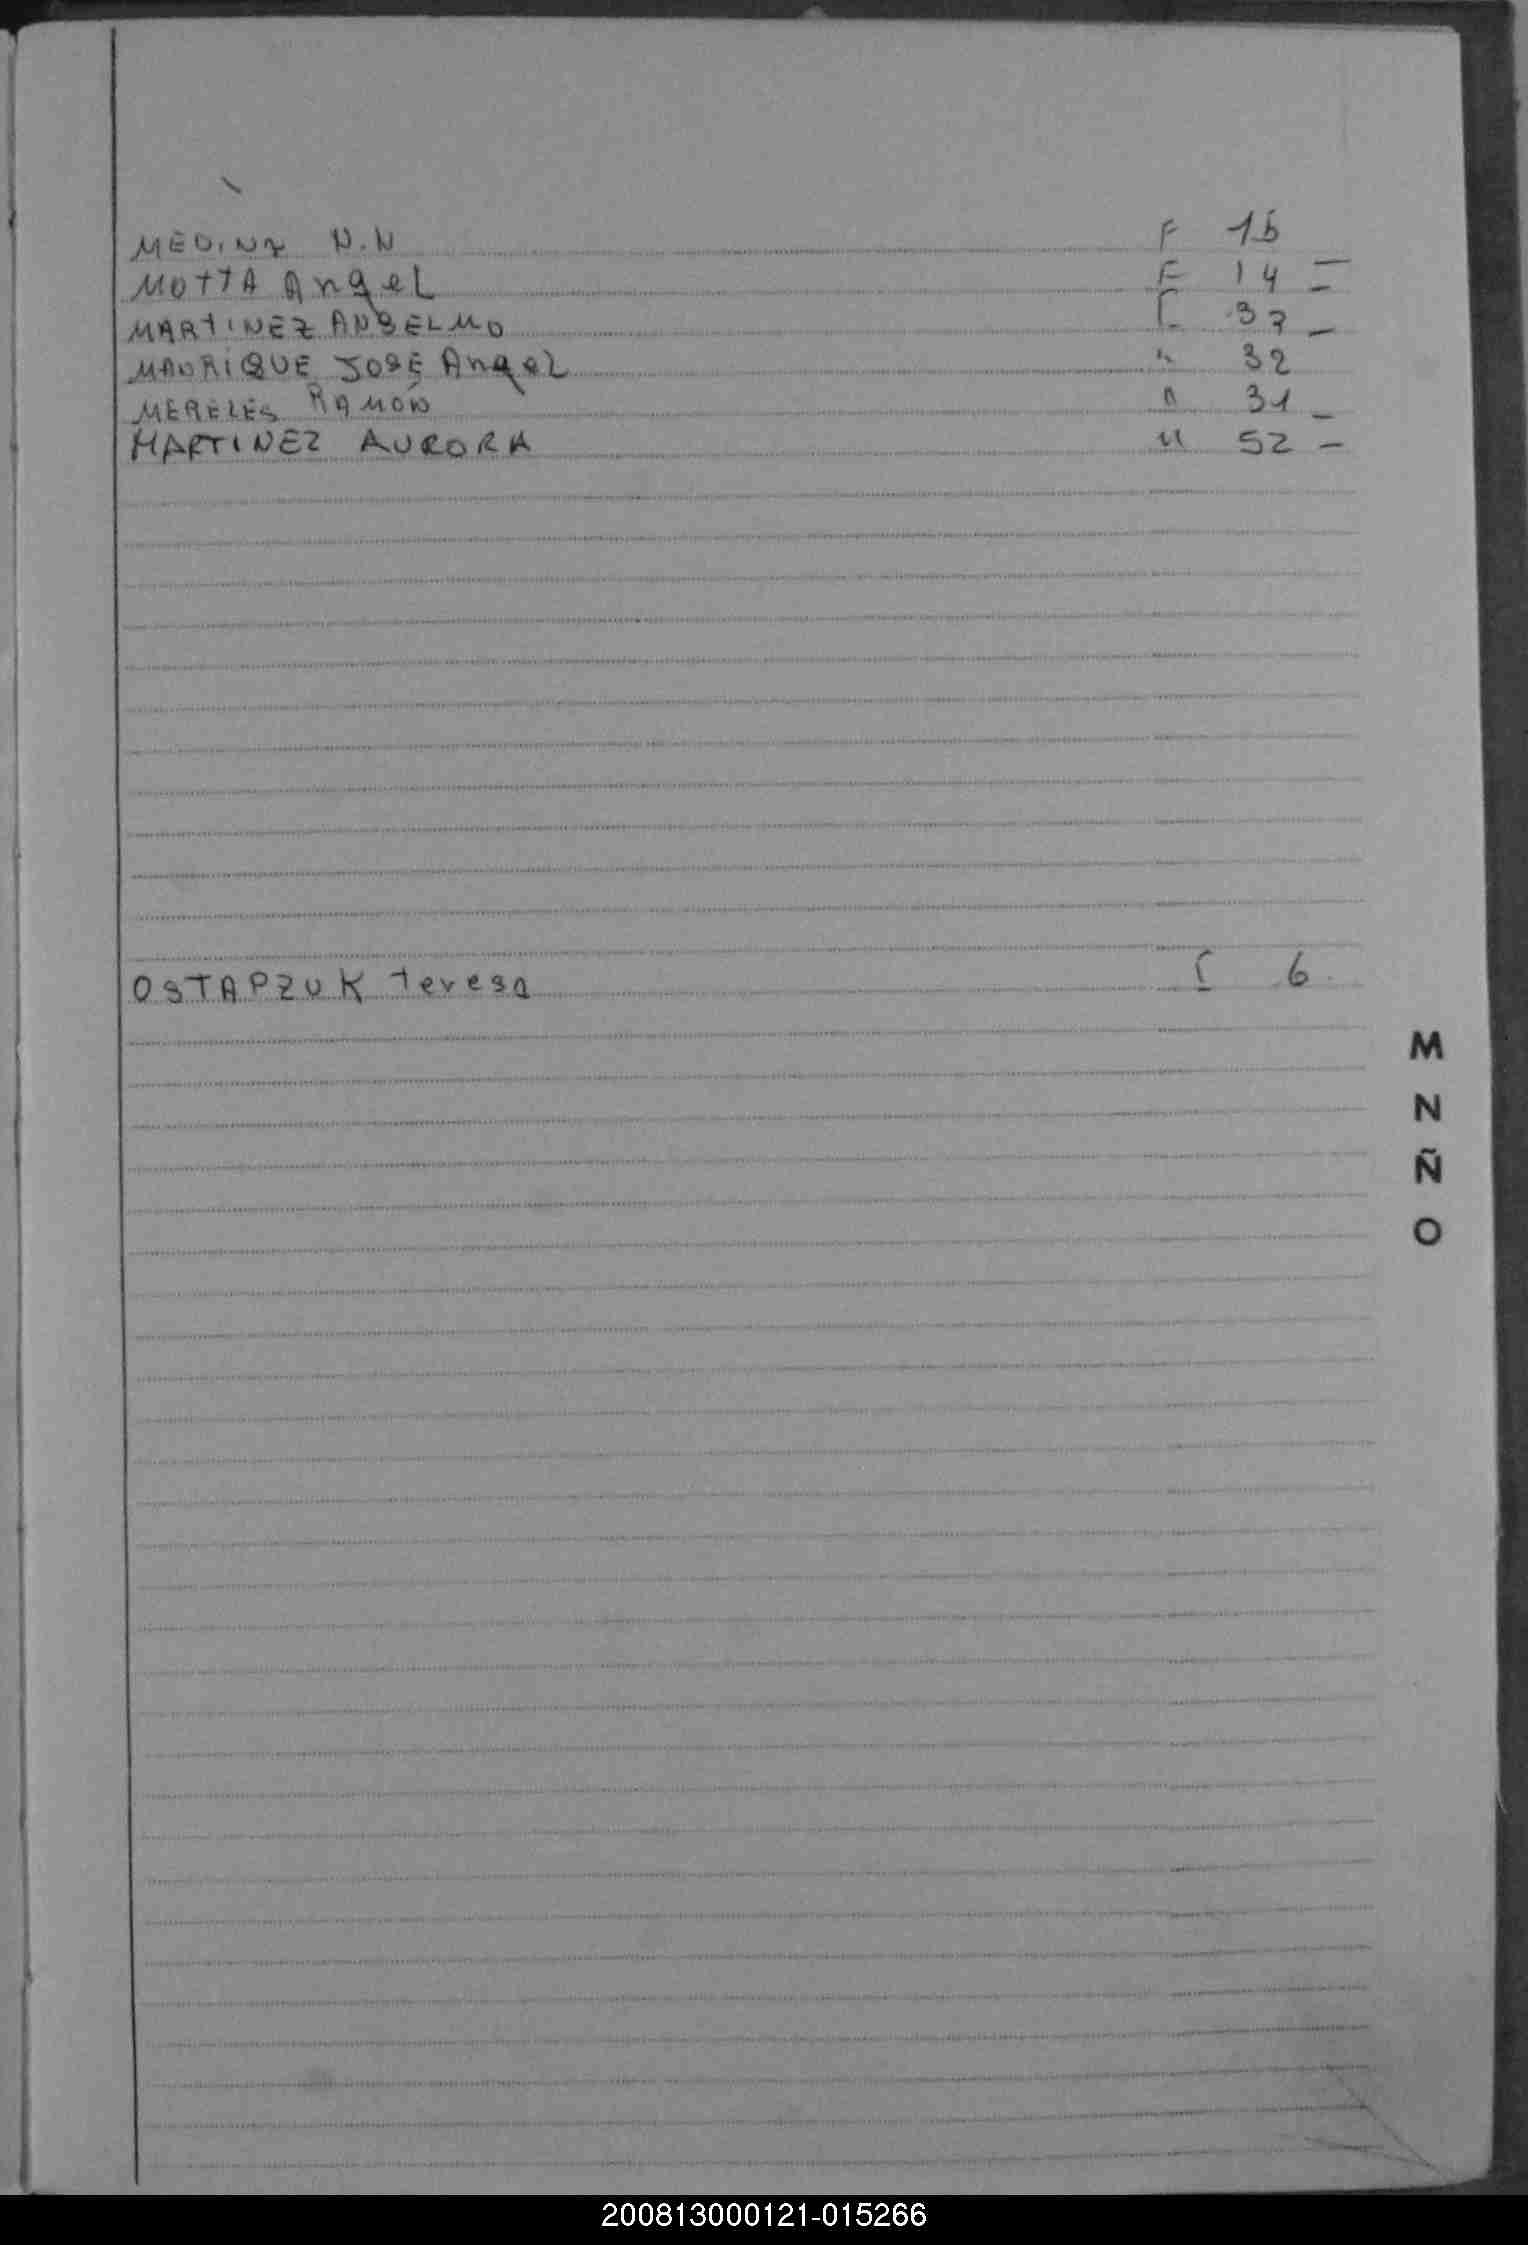 MEDINA N.N F 16
MOTTA AngeL F 14 =
MARTINEZ ANSELMO 37 -
MANRIQUE JOSE AngeL " 32
MERELES RAMÓN " 31 -
MARTINEZ AURORA " 52 -
OSTAPZUK teresa 6
M
N
Ñ
O
200813000121-015266